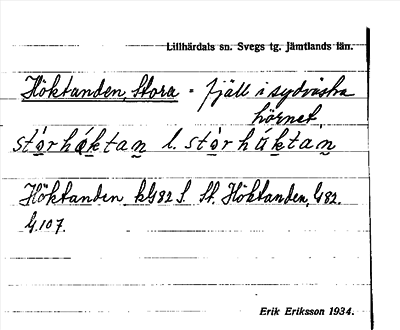 Lillhärdals sn. Svegs tg. Jämtlands län.
Höktanden, Stora - fjäll i sydvästra
hörnet.
stórháktan l. stórhúktan
Höktanden kG82 S. St. Höktanden, G82.
G.107.
Erik Eriksson 1934.